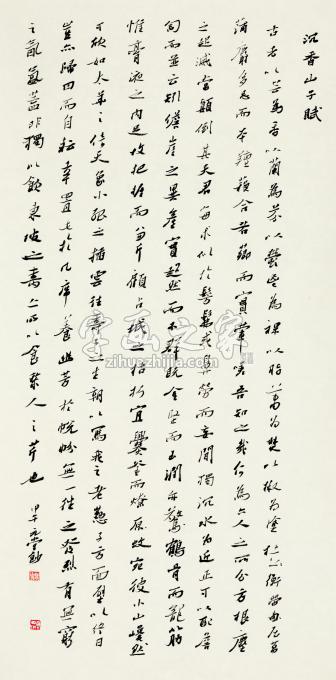 沉香山子賦
古者以芸為香以蘭為芬以鬱鬯為祼以脂蕭為焚以椒為塗杜衡帶屈菖
蒲薦多忌而本羶蘇合若薌而實葷嗟吾知之幾何為六入之所分方根塵
之起滅常顛倒其天君每求似於髣髴或鼻勞而妄聞獨沉水為近正可以配薝
匐而並云矧儋崖之異產實超然而不群既金堅而玉潤亦鶴骨而龍筋
惟膏液之內足故把握而兼斤顧占城之枯朽宜爨釜而燎蚊宛彼小山巉然
可欣如太華之倚天象小孤之插雲往壽子之生朝以寫我之老懃子方面壁以終日
豈亦歸田而自耘幸置此於几席養幽芳於帨帉無一往之發烈有無窮
之氤氳蓋非獨以飲東坡之壽亦所以食黎人之芹也 甲午
字画之家
www.zihuazhijia.com